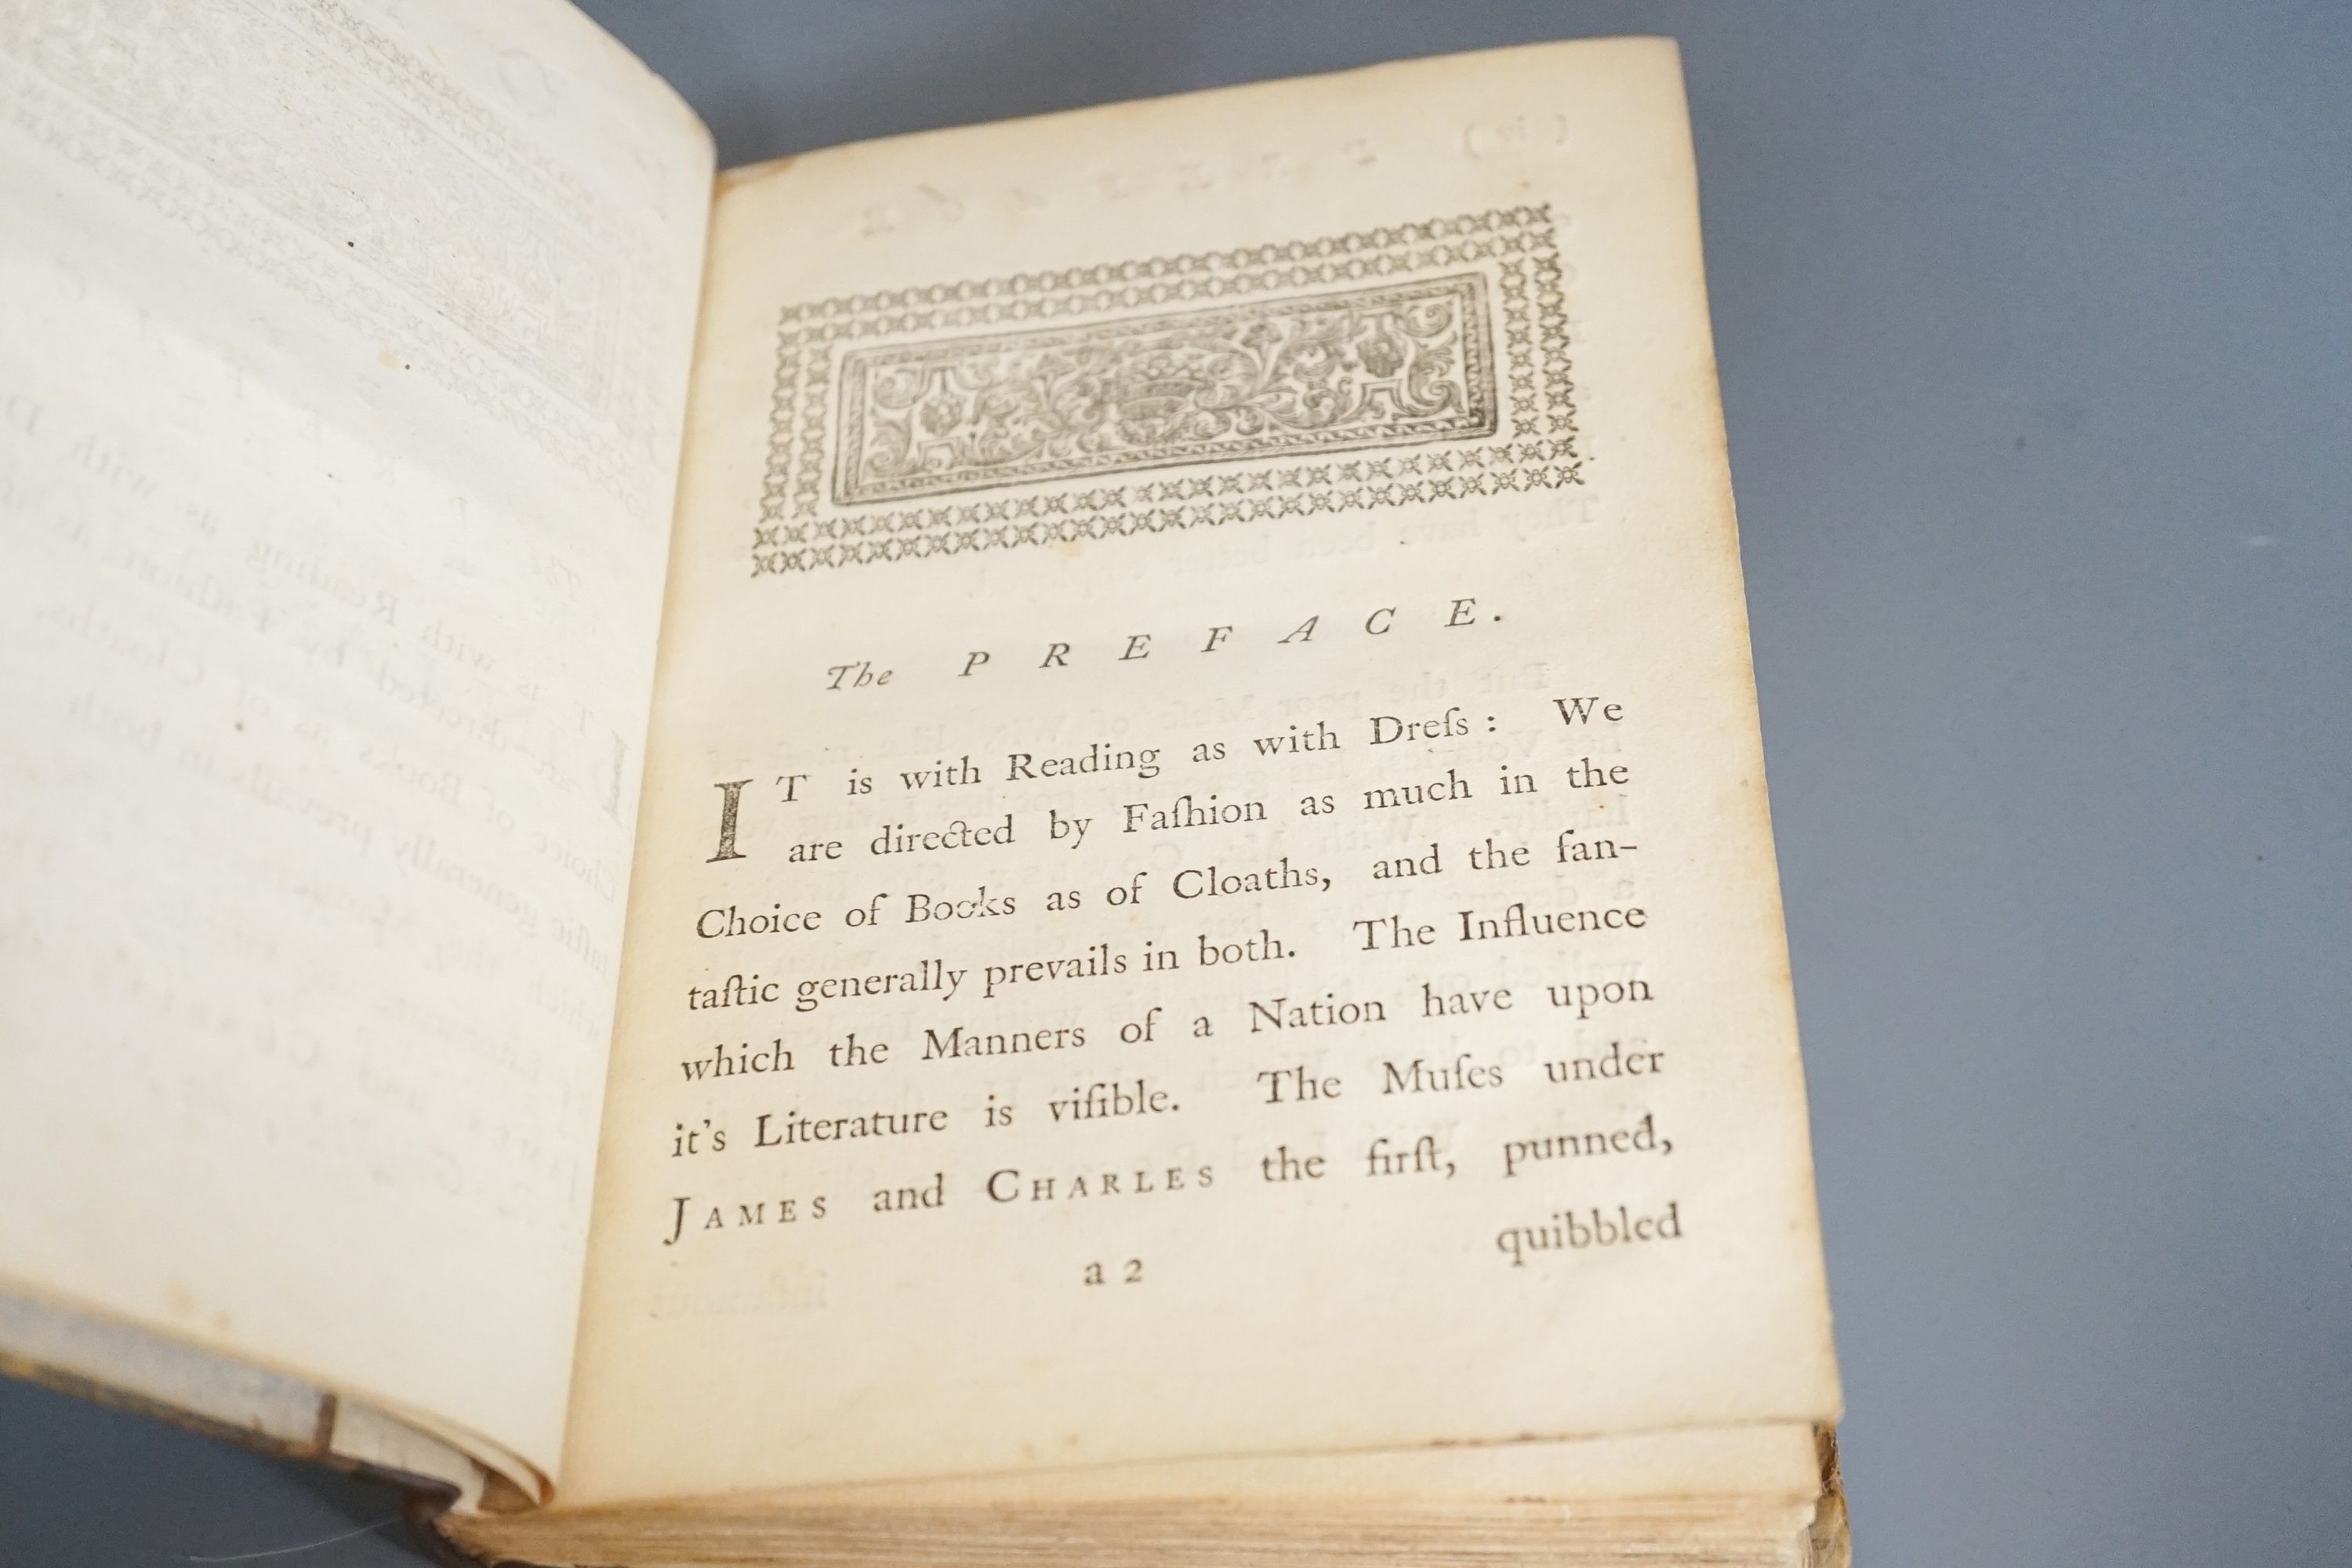 The PREFACE.
IT is with Reading as with Dreſs : We
are directed by Faſhion as much in the
Choice of Books as of Cloaths, and the fan-
taſtic generally prevails in both. The Influence
which the Manners of a Nation have upon
it's Literature is viſible. The Muſes under
JAMES and CHARLES the firſt, punned,
a 2
quibbled